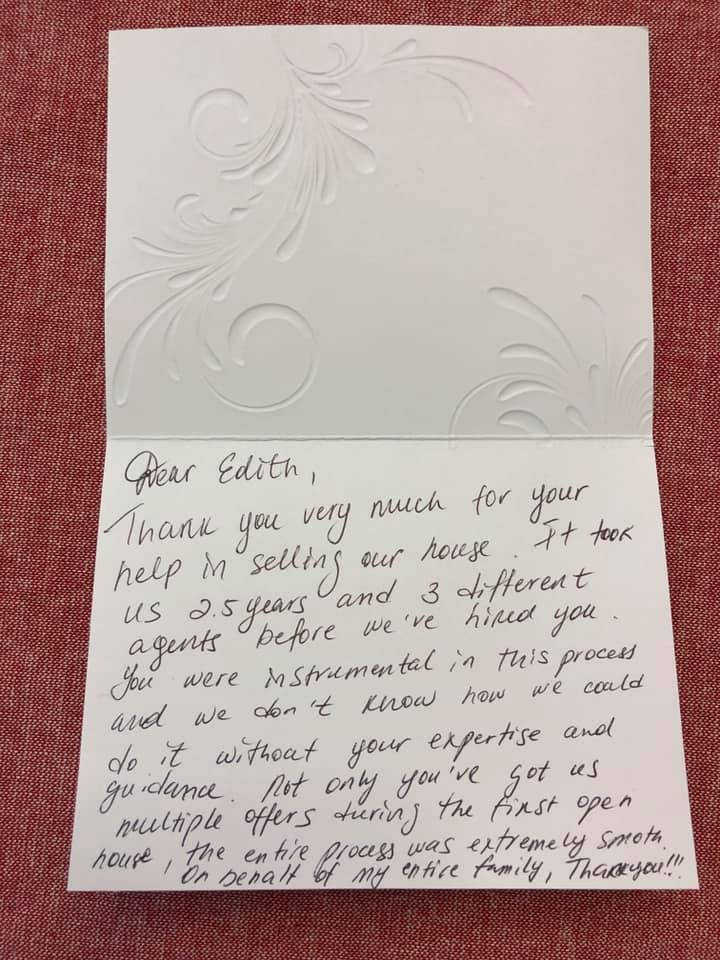 Dear Edith,
Thank you very much for your
help in selling our house. It took
us 2.5 years and 3 different
agents before we've hired you.
You were instrumental in this process
and we don't know how we could
do it without your expertise and
guidance. Not only you've got us
multiple offers during the first open
house, the entire process was extremely smoth.
On behalf of my entire family, Thank you!!!